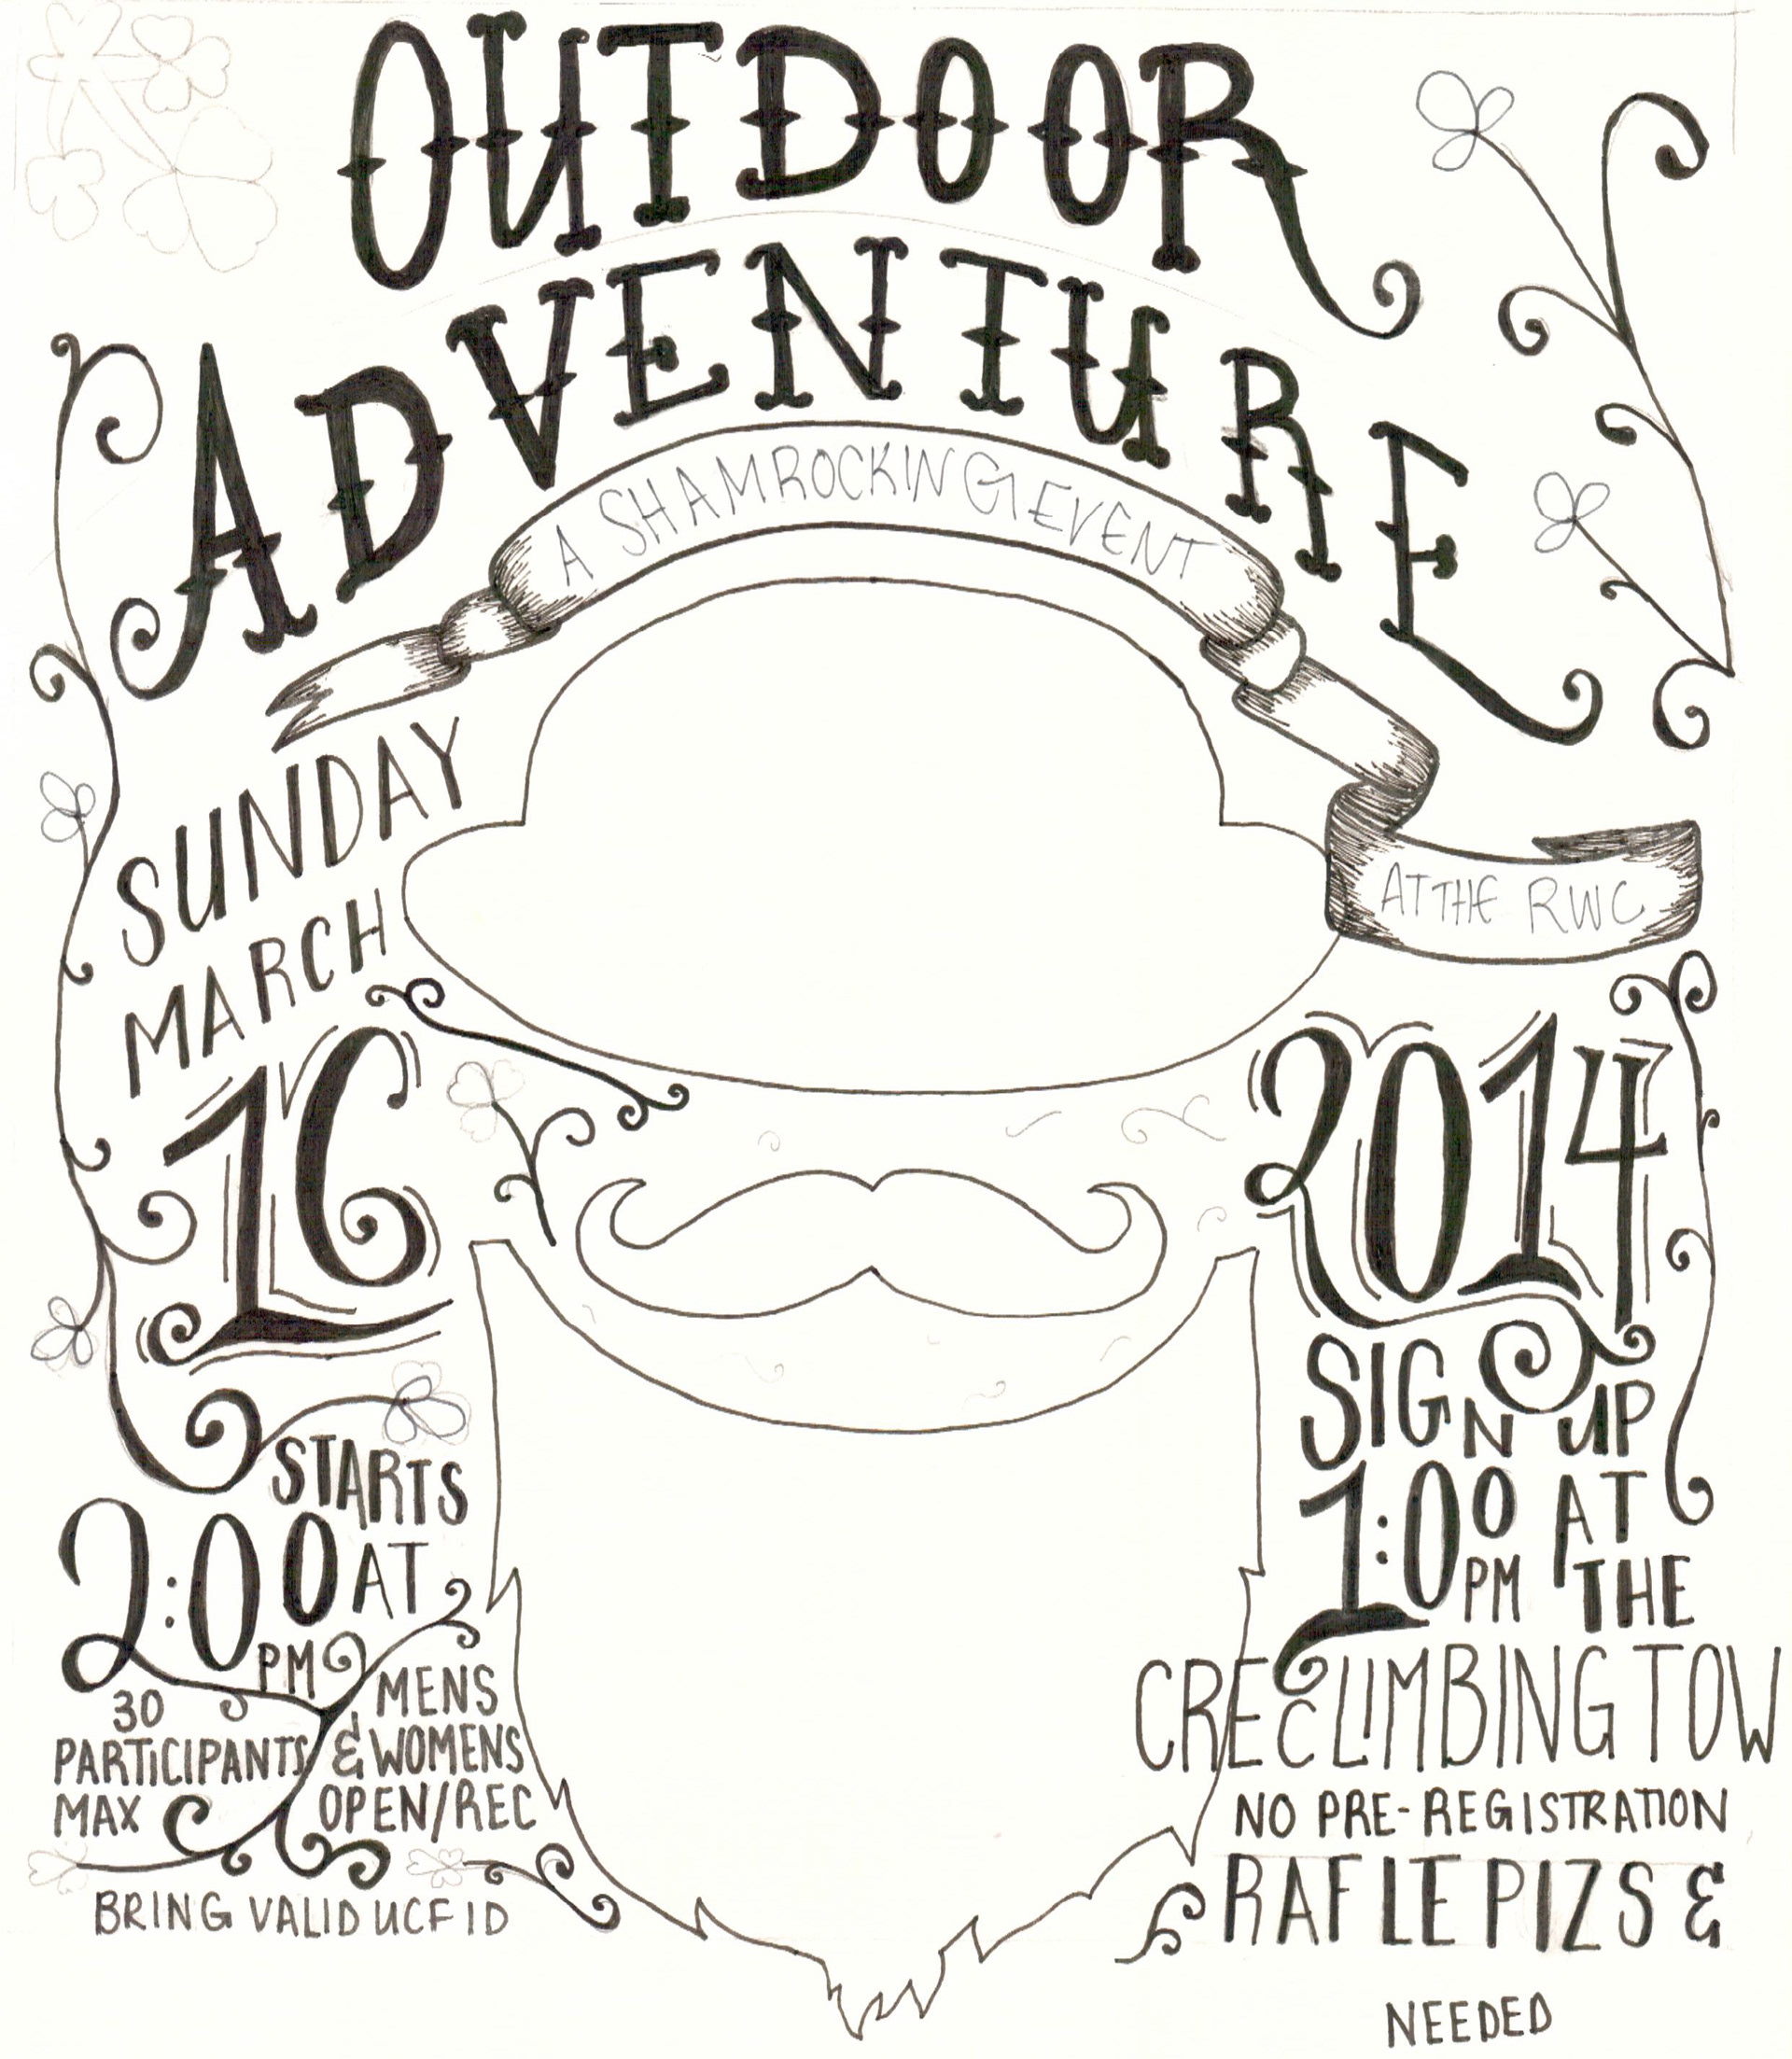 OUTDOOR
ADVENTURE
A SHAMROCKING EVENT
AT THE RWC
SUNDAY
MARCH
16
2014
STARTS
2:00 AT
PM
30
PARTICIPANTS
MAX
MENS
& WOMENS
OPEN/REC
BRING VALID UCF ID
SIGN UP
1:00 AT
PM THE
CRECLIMBING TOW
NO PRE-REGISTRATION
RAFLE PIZS &
NEEDED